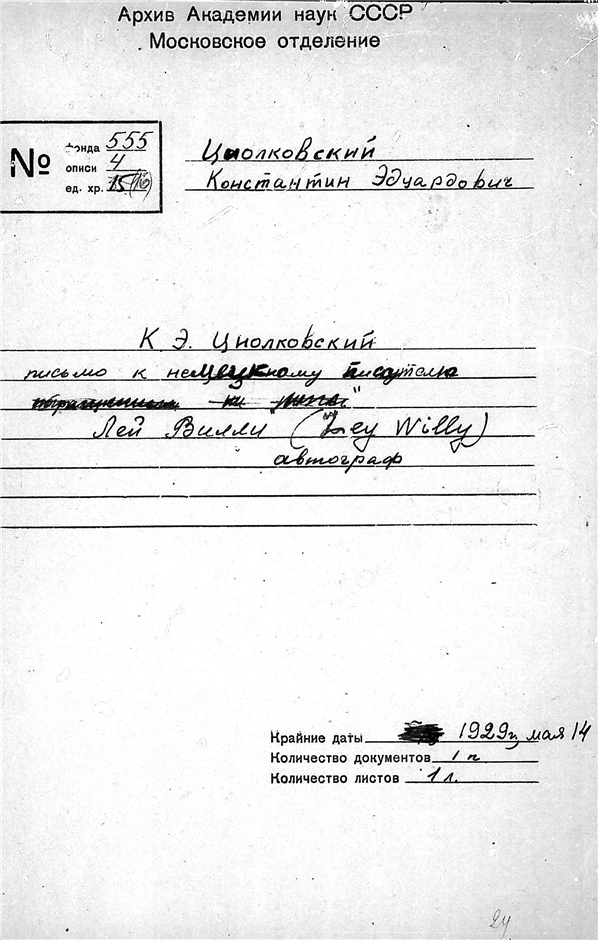 Архив Академии наук СССР
Московское отделение
№
фонда 555
описи 4
ед. хр. 15 (16)
Циолковский
Константин Эдуардович
К Э. Циолковский
письмо к немецкному писателю
Лей Вилли (Ley Willy)
автограф
Крайние даты 1929г, мая 14
Количество документов 1 п
Количество листов 1 л.
24